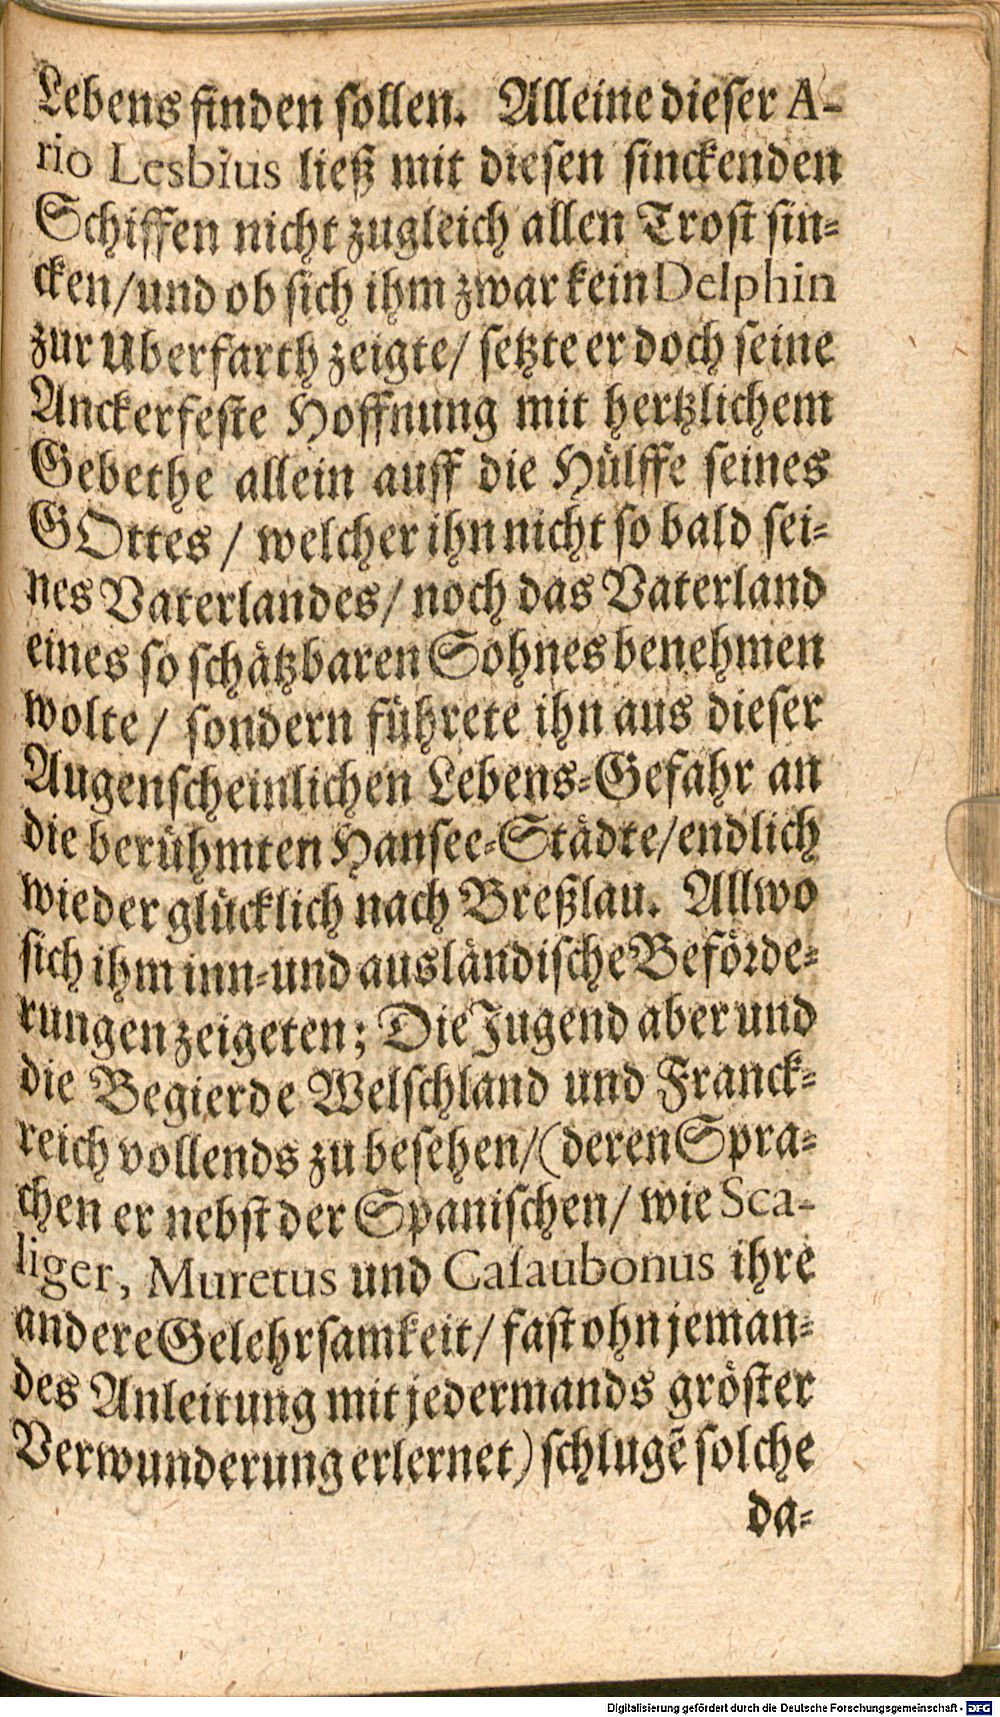 Lebens finden sollen. Alleine dieser A-
rio Lesbius ließ mit diesen sinckenden
Schiffen nicht zugleich allen Trost sin-
cken/und ob sich ihm zwar kein Delphin
zur Uberfarth zeigte/ setzte er doch seine
Anckerfeste Hoffnung mit hertzlichem
Gebethe allein auff die Hülffe seines
GOttes / welcher ihn nicht so bald sei-
nes Vaterlandes/ noch das Vaterland
eines so schätzbaren Sohnes benehmen
wolte/ sondern führete ihn aus dieser
Augenscheinlichen Lebens-Gefahr an
die berühmten Hansee-Städte/endlich
wieder glücklich nach Breßlau. Allwo
sich ihm inn-und ausländische Beförde-
rungen zeigeten; Die Jugend aber und
die Begierde Welschland und Franck-
reich vollends zu besehen/(deren Spra-
chen er nebst der Spanischen/ wie Sca-
liger, Muretus und Casaubonus ihre
andere Gelehrsamkeit/ fast ohn jeman-
des Anleitung mit jedermands gröster
Verwunderung erlernet) schlugẽ solche
da-
Digitalisierung gefördert durch die Deutsche Forschungsgemeinschaft - DFG